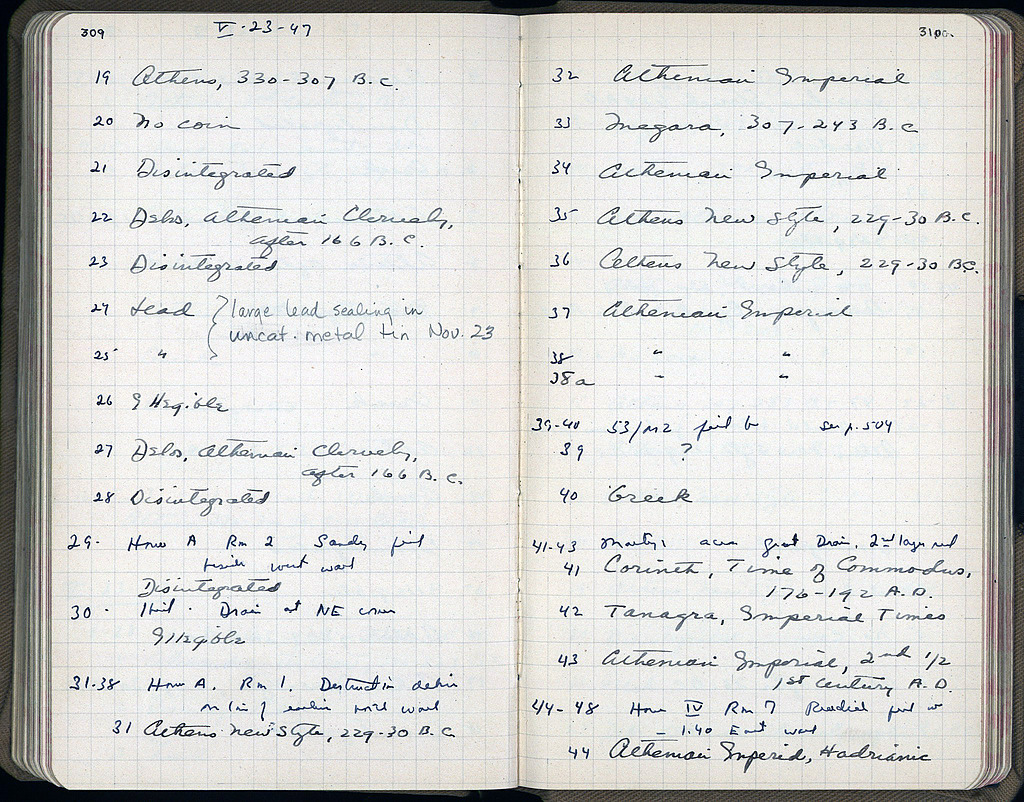 309
V-23-47
19 Athens, 330-307 B.C.
20 No coin
21 Disintegrated
22 Delos, Athenian Cleruchy,
after 166 B.C.
23 Disintegrated
24 Lead } large lead sealing in
uncat. metal tin Nov. 23
25 "
26 Illegible
27 Delos, Athenian Cleruchy,
after 166 B.C.
28 Disintegrated
29. House A Rm 2 Sandy fill
west wall
Disintegrated
30. Ibid. Drain at NE corner
Illegible
31-38 House A. Rm 1. Destruction debris
on line of earlier north wall
31 Athens New Style, 229-30 B.C.
310
32 Athenian Imperial
33 Megara, 307-243 B.C.
34 Athenian Imperial
35 Athens New Style, 229-30 B.C.
36 Athens New Style, 229-30 B.C.
37 Athenian Imperial
38 " "
38a " "
39-40 53/ME fill see p. 504
39 ?
40 Greek
41-43 area great Drain, 2nd layer
41 Corinth, Time of Commodus,
176-192 A.D.
42 Tanagra, Imperial Times
43 Athenian Imperial, 2nd 1/2
1st Century A.D.
44-48 House IV Rm 7
- 1.40 East wall
44 Athenian Imperial, Hadrianic